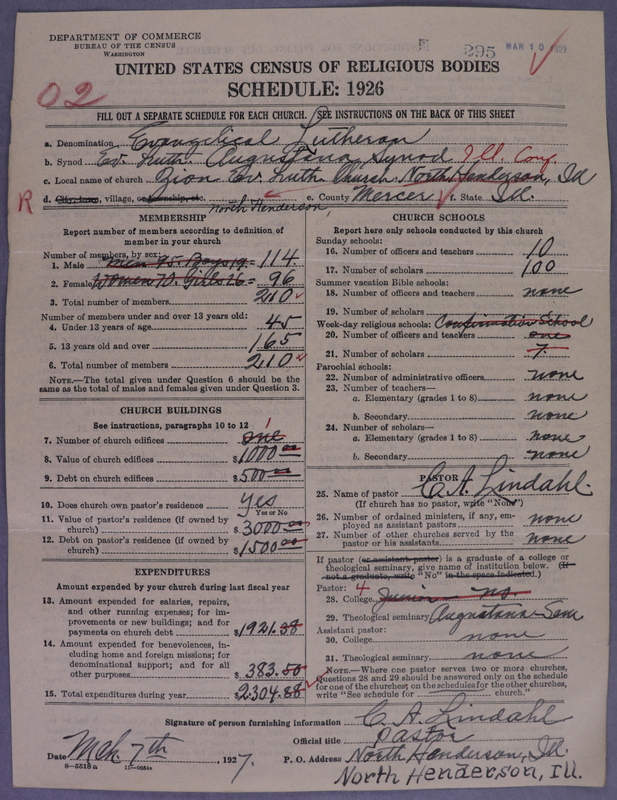 DEPARTMENT OF COMMERCE
BUREAU OF THE CENSUS
WASHINGTON
295
MAR 10 1927
UNITED STATES CENSUS OF RELIGIOUS BODIES
SCHEDULE: 1926
02
FILL OUT A SEPARATE SCHEDULE FOR EACH CHURCH. SEE INSTRUCTIONS ON THE BACK OF THIS SHEET
a. Denomination Evangelical Lutheran
b. Synod Ev. Luth. Augustana Synod Ill. Conf.
c. Local name of church Zion Ev. Luth. Church North Henderson, Ill
R
d. City, town, village, or township, etc. North Henderson, e. County Mercer f. State Ill.
MEMBERSHIP
Report number of members according to definition of
member in your church
Number of members, by sex:
1. Male Men 95. Boys 19. = 114
2. Female Women 70. Girls 26 = 96
3. Total number of members 210
Number of members under and over 13 years old:
4. Under 13 years of age 45
5. 13 years old and over 165
6. Total number of members 210
NOTE.—The total given under Question 6 should be the
same as the total of males and females given under Question 3.
CHURCH BUILDINGS
See instructions, paragraphs 10 to 12
7. Number of church edifices one
8. Value of church edifices $1000.00
9. Debt on church edifices $500.00
10. Does church own pastor's residence yes
Yes or No
11. Value of pastor's residence (if owned by
church) $3000.00
12. Debt on pastor's residence (if owned by
church) $1500.00
EXPENDITURES
Amount expended by your church during last fiscal year
13. Amount expended for salaries, repairs,
and other running expenses; for im-
provements or new buildings; and for
payments on church debt $1921.38
14. Amount expended for benevolences, in-
cluding home and foreign missions; for
denominational support; and for all
other purposes $383.50
15. Total expenditures during year $2304.88
CHURCH SCHOOLS
Report here only schools conducted by this church
Sunday schools:
16. Number of officers and teachers 10
17. Number of scholars 100
Summer vacation Bible schools:
18. Number of officers and teachers none
19. Number of scholars
Week-day religious schools: Confirmation School
20. Number of officers and teachers one
21. Number of scholars 7
Parochial schools:
22. Number of administrative officers none
23. Number of teachers—
a. Elementary (grades 1 to 8) none
b. Secondary none
24. Number of scholars—
a. Elementary (grades 1 to 8) none
b. Secondary none
PASTOR
25. Name of pastor C. A. Lindahl.
(If church has no pastor, write "None")
26. Number of ordained ministers, if any, em-
ployed as assistant pastors none
27. Number of other churches served by the
pastor or his assistants none
If pastor (or assistant pastor) is a graduate of a college or
theological seminary, give name of institution below. (If
not a graduate, write "No" in the space indicated.)
Pastor: 4
28. College Junior no.
29. Theological seminary Augustana Sem
Assistant pastor:
30. College none
31. Theological seminary none
NOTE.—Where one pastor serves two or more churches,
Questions 28 and 29 should be answered only on the schedule
for one of the churches; on the schedules for the other churches,
write "See schedule for church."
Signature of person furnishing information C. A. Lindahl
Official title Pastor
Date Mch 7th, 1927.
P. O. Address North Henderson, Ill.
North Henderson, Ill.
8—5518a